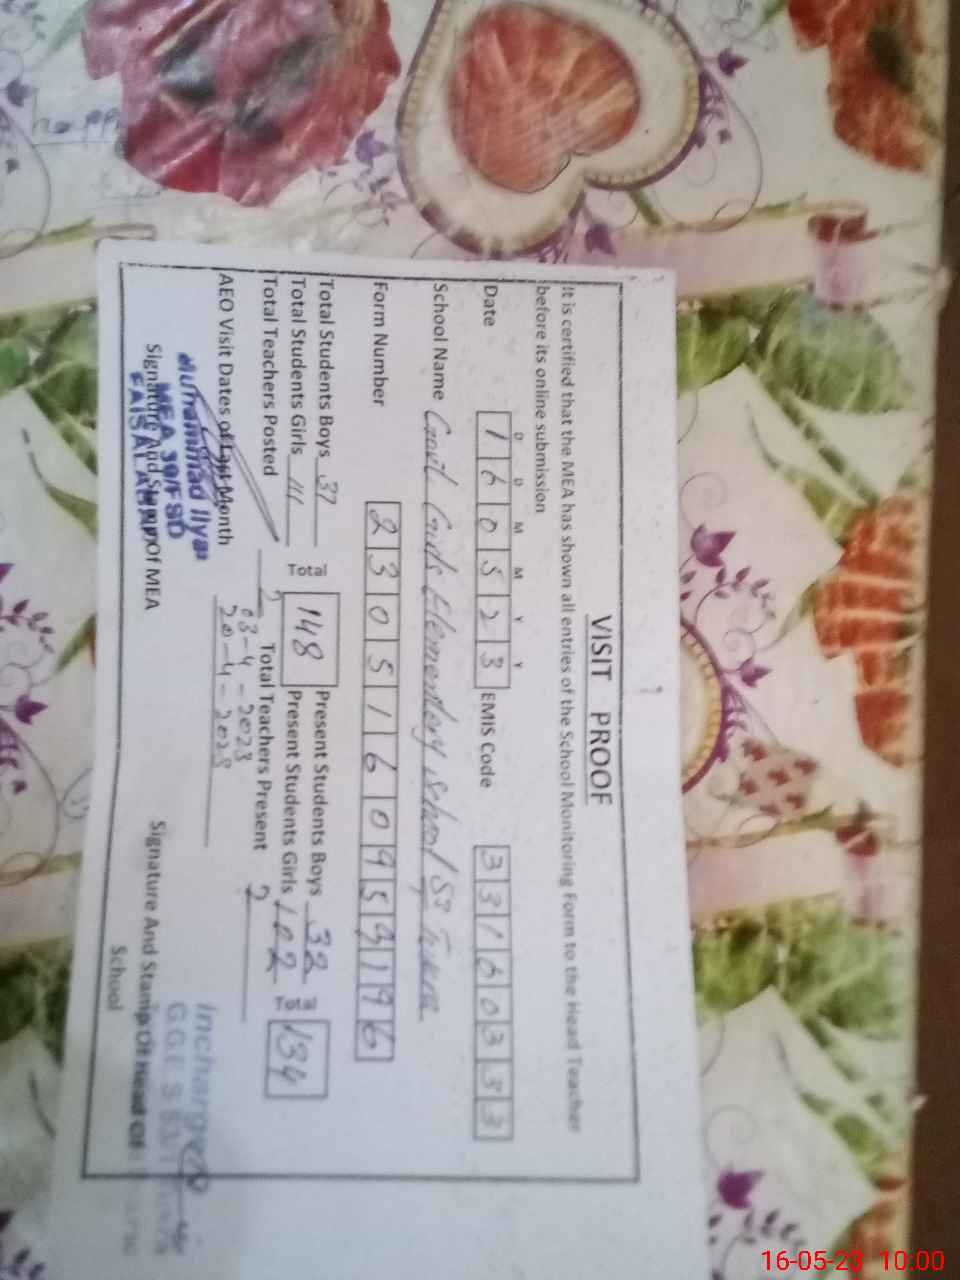 VISIT PROOF
It is certified that the MEA has shown all entries of the School Monitoring Form to the Head Teacher
before its online submission
D D M M Y Y
Date 160523 EMIS Code 33160333
School Name Govt Girls Elementary school 53
Form Number 2305160959196
Total Students Boys 37 Total 148 Present Students Boys 32
Total Students Girls 111 Present Students Girls 102 134
Total Teachers Posted 2 Total Teachers Present 2
AEO Visit Dates of Last Month 03-4-2023
20-4-2023
Muhammad Ilyas
MEA 39/FSD
FAISALABAD
Signature And Stamp Of MEA
Incharge
G.G.E.S. 53
Signature And Stamp Of Head Of
School
16-05-23 10:00